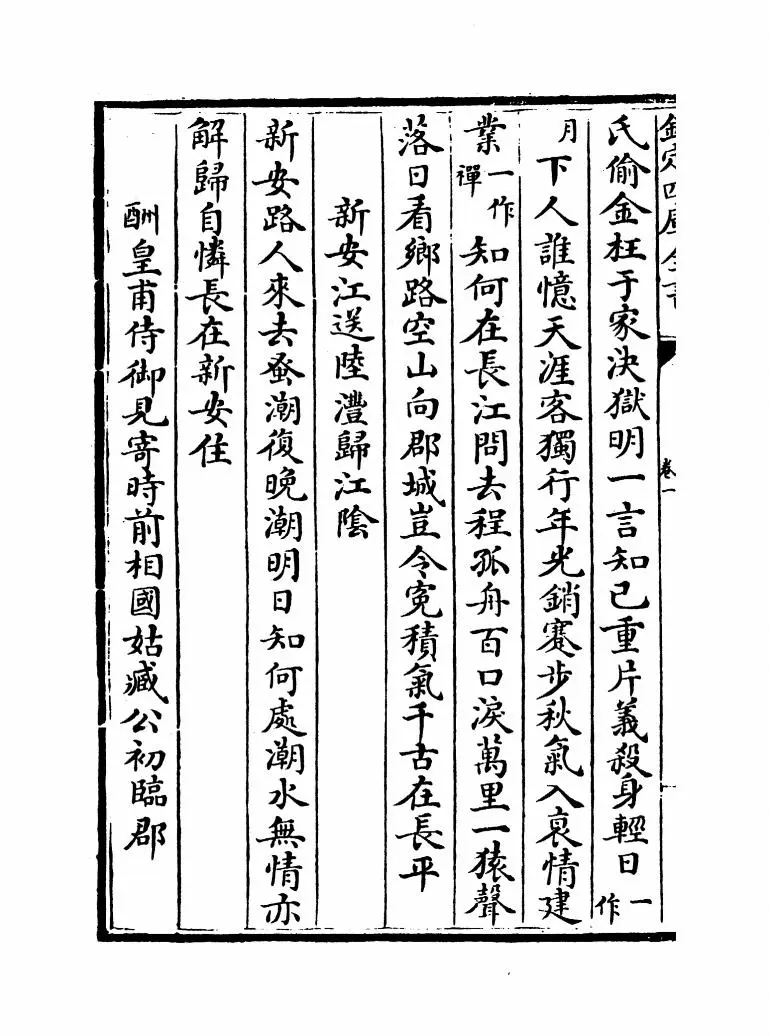 欽定四庫全書
卷一
氏偷金枉于家決獄明一言知已重片義殺身輕日一作
月下人誰憶天涯客獨行年光銷蹇步秋氣入哀情建
業一作禪知何在長江問去程孤舟百口淚萬里一猿聲
落日看鄉路空山向郡城豈令寃積氣千古在長平
新安江送陸灃歸江陰
新安路人來去蚤潮復晚潮明日知何處潮水無情亦
解歸自憐長在新安住
酬皇甫侍御見寄時前相國姑臧公初臨郡